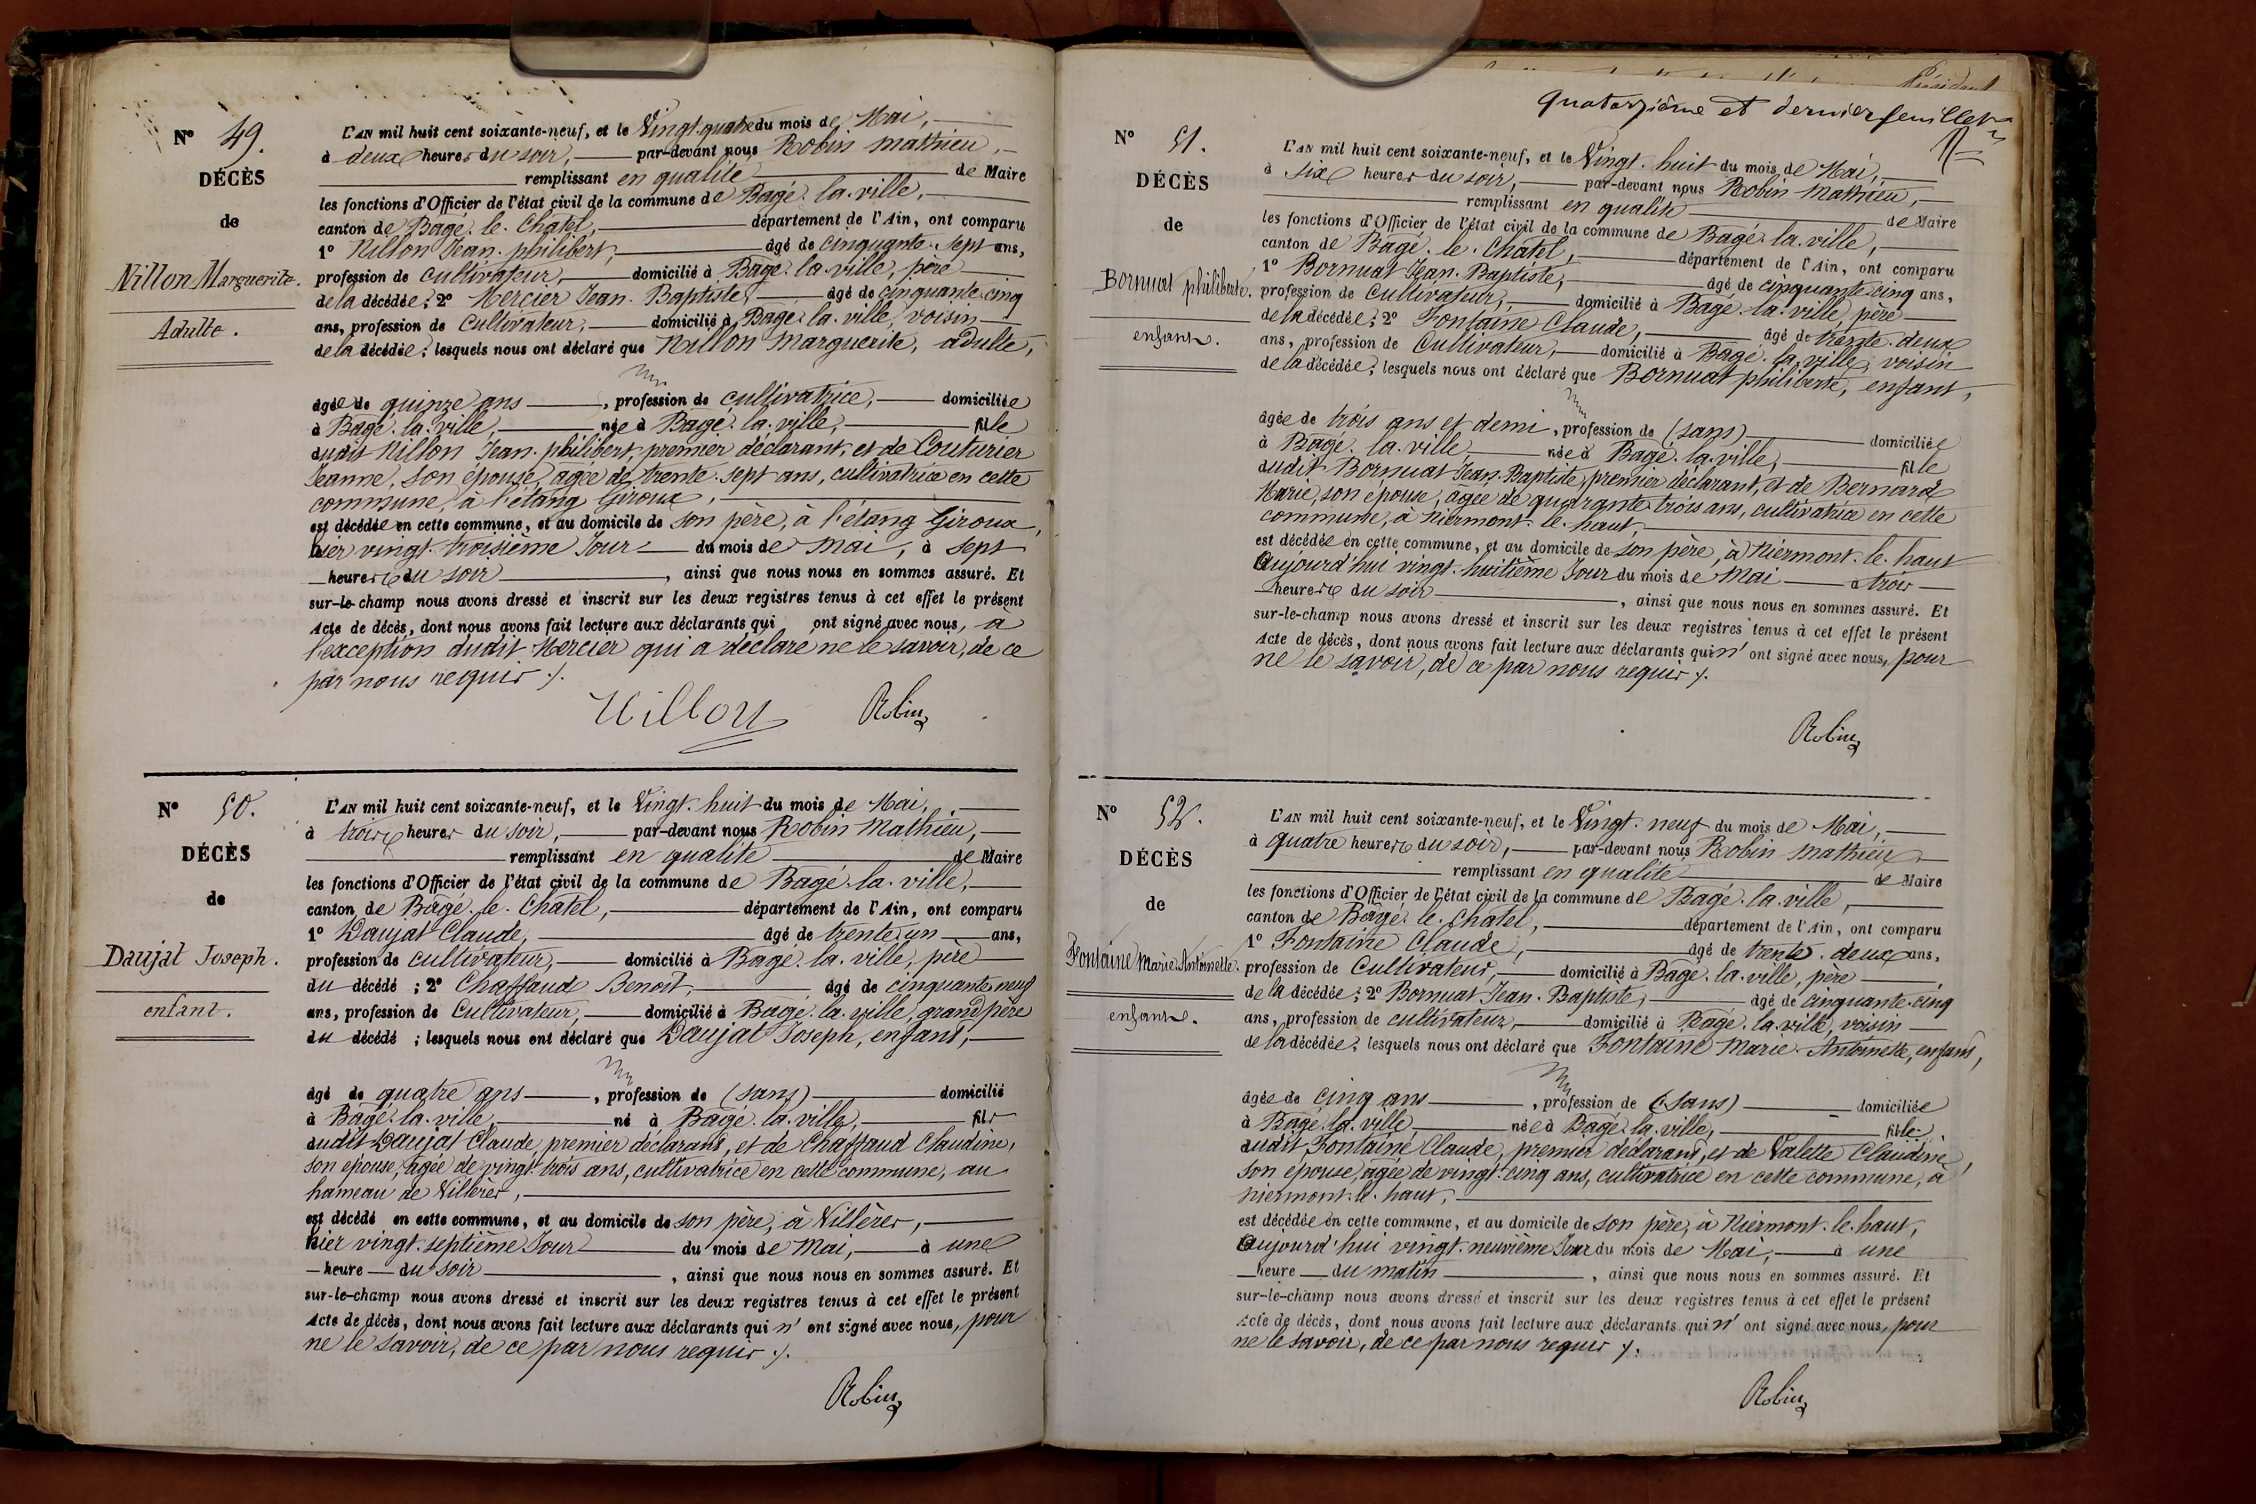 N° 49.
DÉCÈS
de
Nillon Marguerite.
Adulte.
L'AN mil huit cent soixante-neuf, et le Vingt-quatre du mois de Mai,
à deux heures du soir, par-devant nous Robin Mathieu,
remplissant en qualité de Maire
les fonctions d'Officier de l'état civil de la commune de Bagé-la-ville,
canton de Bagé-le-Châtel, département de l'Ain, ont comparu
1° Nillon Jean-philibert, âgé de cinquante-sept ans,
profession de cultivateur, domicilié à Bagé-la-ville, père
de la décédée; 2° Mercier Jean-Baptiste, âgé de cinquante-cinq
ans, profession de Cultivateur, domicilié à Bagé-la-ville, voisin
de la décédée; lesquels nous ont déclaré que Nillon Marguerite, adulte,
âgée de quinze ans, profession de cultivatrice, domiciliée
à Bagé-la-ville, née à Bagé-la-ville, fille
dudit Nillon Jean-philibert, premier déclarant, et de Couturier
Jeanne, son épouse, âgée de trente-sept ans, cultivatrice en cette
commune, à l'étang Giroux,
est décédée en cette commune, et au domicile de son père, à l'étang Giroux,
hier vingt-troisième Jour du mois de Mai, à sept
heures du soir, ainsi que nous nous en sommes assuré. Et
sur-le-champ nous avons dressé et inscrit sur les deux registres tenus à cet effet le présent
Acte de décès, dont nous avons fait lecture aux déclarants qui ont signé avec nous, à
l'exception dudit Mercier qui a déclaré ne le savoir, de ce
par nous requis ./.
Nillon Robin
N° 50.
DÉCÈS
de
Daujat Joseph.
enfant.
L'AN mil huit cent soixante-neuf, et le Vingt-huit du mois de Mai,
à trois heures du soir, par-devant nous Robin Mathieu,
remplissant en qualité de Maire
les fonctions d'Officier de l'état civil de la commune de Bagé-la-ville,
canton de Bagé-le-Châtel, département de l'Ain, ont comparu
1° Daujat Claude, âgé de trente-un ans,
profession de cultivateur, domicilié à Bagé-la-ville, père
du décédé; 2° Chaffaud Benoit, âgé de cinquante-neuf
ans, profession de Cultivateur, domicilié à Bagé-la-ville, grand père
du décédé; lesquels nous ont déclaré que Daujat Joseph, enfant,
âgé de quatre ans, profession de (sans) domicilié
à Bagé-la-ville, né à Bagé-la-ville, fils
dudit Daujat Claude, premier déclarant, et de Chaffaud Claudine,
son épouse, âgée de vingt-trois ans, cultivatrice en cette commune, au
hameau de Villères,
est décédé en cette commune, et au domicile de son père, à Villères,
hier vingt-septième Jour du mois de Mai, à une
heure du soir, ainsi que nous nous en sommes assuré. Et
sur-le-champ nous avons dressé et inscrit sur les deux registres tenus à cet effet le présent
Acte de décès, dont nous avons fait lecture aux déclarants qui n'ont signé avec nous, pour
ne le savoir, de ce par nous requis ./.
Robin
Président
quatorzième et dernier feuillet
N° 51.
DÉCÈS
de
Bornuat philiberte.
enfant.
L'AN mil huit cent soixante-neuf, et le Vingt-huit du mois de Mai,
à six heures du soir, par-devant nous Robin Mathieu,
remplissant en qualité de Maire
les fonctions d'Officier de l'état civil de la commune de Bagé-la-ville,
canton de Bagé-le-Châtel, département de l'Ain, ont comparu
1° Bornuat Jean-Baptiste, âgé de cinquante-cinq ans,
profession de Cultivateur, domicilié à Bagé-la-ville, père
de la décédée; 2° Fontaine Claude, âgé de trente-deux
ans, profession de Cultivateur, domicilié à Bagé-la-ville, voisin
de la décédée; lesquels nous ont déclaré que Bornuat philiberte, enfant,
âgée de trois ans et demi, profession de (sans) domiciliée
à Bagé-la-ville, née à Bagé-la-ville, fille
dudit Bornuat Jean-Baptiste, premier déclarant, et de Bernard
Marie, son épouse, âgée de quarante-trois ans, cultivatrice en cette
commune, à Niermont-le-haut,
est décédée en cette commune, et au domicile de son père, à Niermont-le-haut
Aujourd'hui vingt-huitième Jour du mois de Mai à trois
heures du soir, ainsi que nous nous en sommes assuré. Et
sur-le-champ nous avons dressé et inscrit sur les deux registres tenus à cet effet le présent
Acte de décès, dont nous avons fait lecture aux déclarants qui n'ont signé avec nous, pour
ne le savoir, de ce par nous requis ./.
Robin
N° 52.
DÉCÈS
de
Fontaine Marie-Antoinette.
enfant.
L'AN mil huit cent soixante-neuf, et le Vingt-neuf du mois de Mai,
à quatre heures du soir, par-devant nous Robin Mathieu
remplissant en qualité de Maire
les fonctions d'Officier de l'état civil de la commune de Bagé-la-ville,
canton de Bagé-le-Châtel, département de l'Ain, ont comparu
1° Fontaine Claude, âgé de trente-deux ans,
profession de Cultivateur, domicilié à Bagé-la-ville, père
de la décédée; 2° Bornuat Jean-Baptiste, âgé de cinquante-cinq
ans, profession de cultivateur, domicilié à Bagé-la-ville, voisin
de la décédée; lesquels nous ont déclaré que Fontaine Marie-Antoinette, enfant,
âgée de cinq ans, profession de (sans) domiciliée
à Bagé-la-ville, née à Bagé-la-ville, fille
dudit Fontaine Claude, premier déclarant, et de Valette Claudine,
son épouse, âgée de vingt-cinq ans, cultivatrice en cette commune, à
Niermont-le-haut,
est décédée en cette commune, et au domicile de son père, à Niermont-le-haut,
Aujourd'hui vingt-neuvième Jour du mois de Mai, à une
heure du matin, ainsi que nous nous en sommes assuré. Et
sur-le-champ nous avons dressé et inscrit sur les deux registres tenus à cet effet le présent
Acte de décès, dont nous avons fait lecture aux déclarants qui n'ont signé avec nous, pour
ne le savoir, de ce par nous requis ./.
Robin